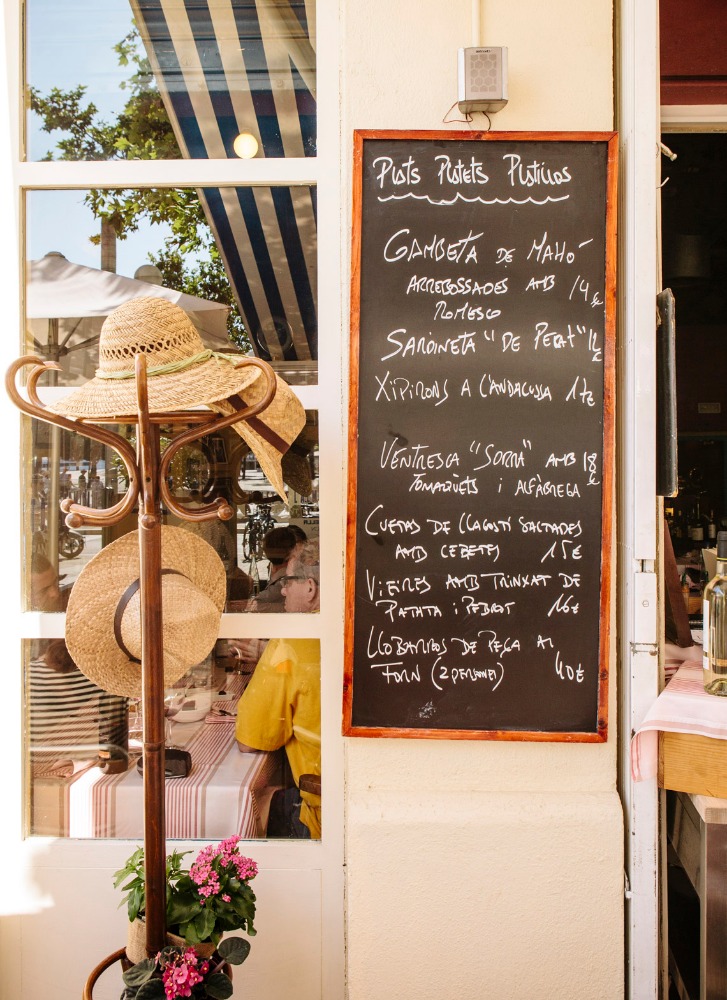 Plats Platets Platillos
GAMBETA DE MAHÓ
ARREBOSSADES AMB 14€
ROMESCO
SARDINETA "DE PERAT" 12€
XIPIRONS A L'ANDALUSA 17€
VENTRESCA "SORRA" AMB 18€
TOMAQUETS i ALFÀBREGA
CUETAS DE LLAGOSTÍ SALTADES
AMB CEBETES 15€
VIEIRES AMB TRINXAT DE
PATATA i PEBROT 16€
LLOBARROS DE PESCA AL
FORN (2 PERSONES) 40€